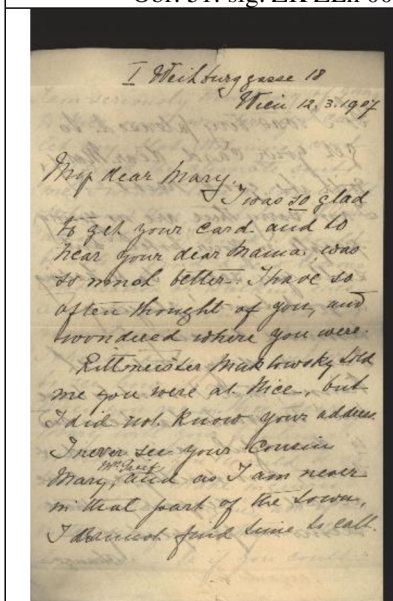 I Weihburggasse 18
Wien 12.3.1907
My dear Mary,
I was so glad
to get your card and to
hear your dear Mama was
so much better. I have so
often thought of you, and
wondered where you were.
Rittmeister Maklowsky told
me you were at Nice, but
I did not know your address.
I never see your Cousin
Mary, and as I am never
in that part of the town,
I cannot find time to call.